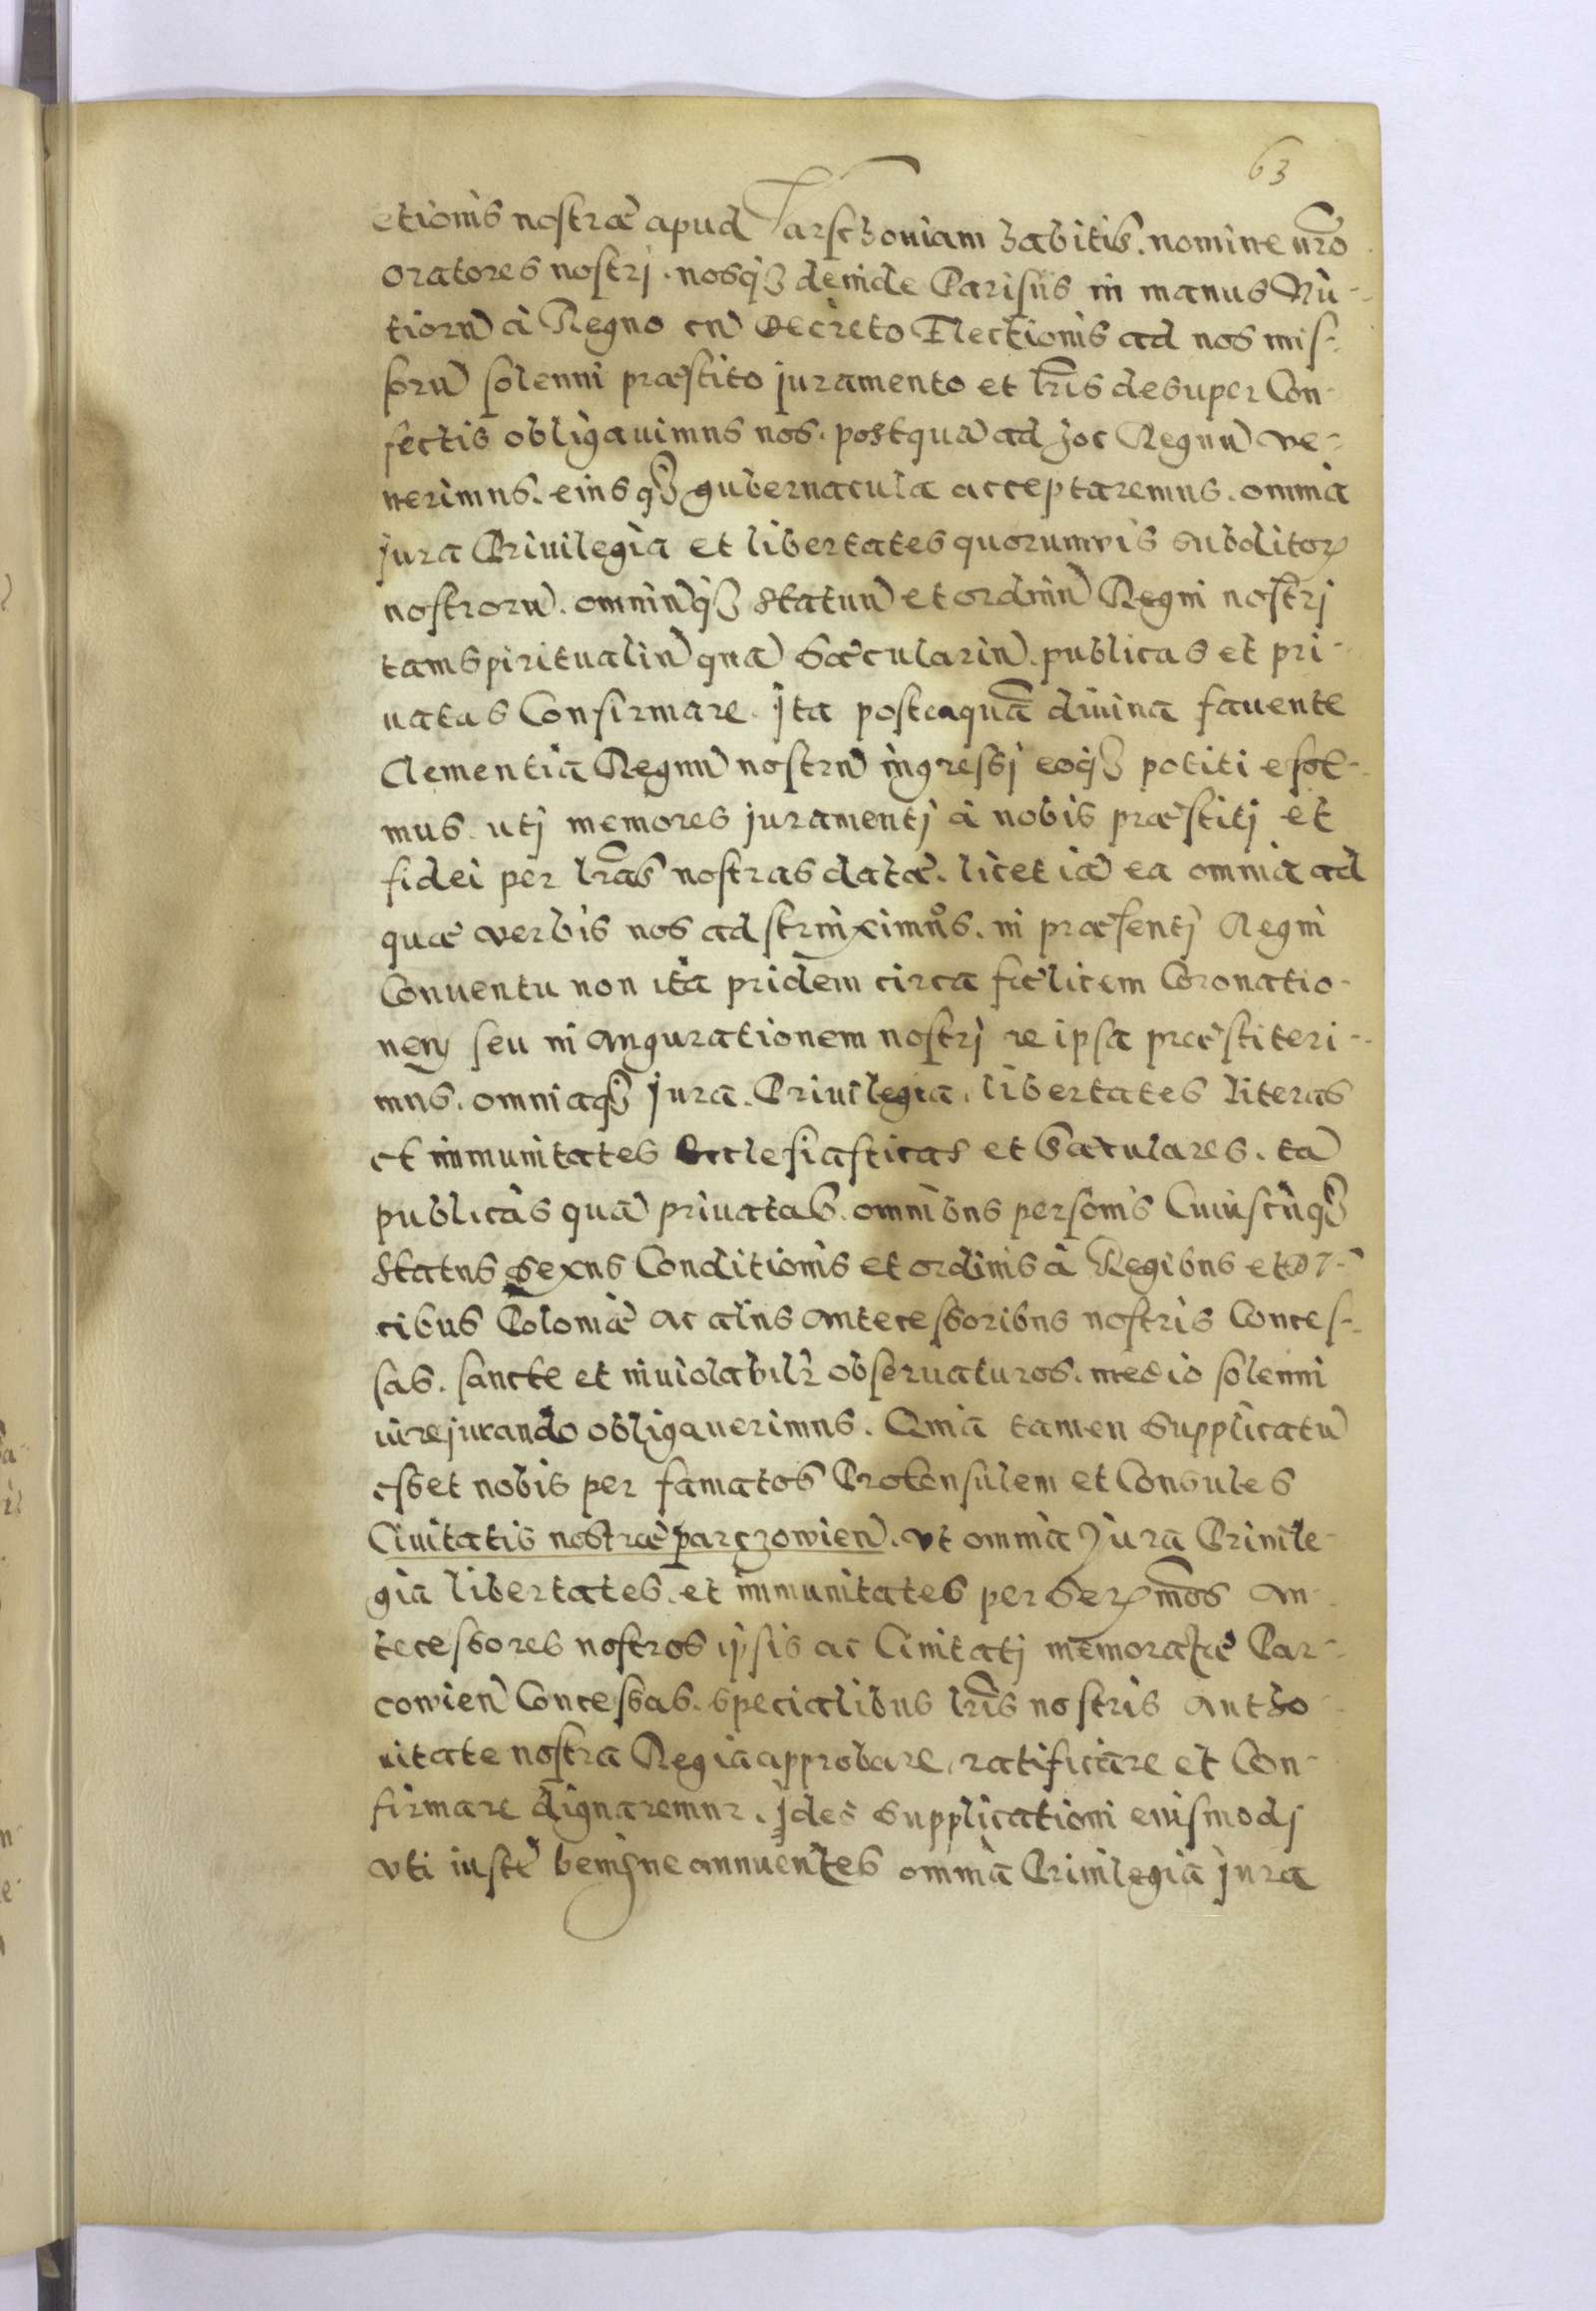 63
etionis nostræ apud Varschoviam habitis. nomine nr̃o
oratores nostrj. nosq3 deinde Parisiis in manus Nũ-
tiorũ à Regno cũ Decreto Electionis ad nos mis-
sorũ solenni præstito juramento et lr̃is desuper Con-
fectis obligavimus nos. postquã ad hoc Regnũ ve-
nerimus. eiusq3 gubernacula acceptaremus. omnia
jura Privilegia et libertates quorumvis subditor
nostrorũ. omniũq3 statuũ et ordinũ Regni nostrj
tam spiritualiũ quã Sæculariũ. publicas et pri-
uatas Confirmare. Ita posteaquã divina fauente
Clementia Regnũ nostrũ ingressj eoq3 potiti esse-
mus. utj memores juramentj à nobis præstitj et
fidei per lr̃as nostras datæ. licet iã ea omnia ad
quæ verbis nos adstrinximus. in præsentj Regni
Conuentu non ita pridem circa fælicem Coronatio-
nem seu inaugurationem nostrj re ipsa præstiteri-
mus. omniaq3 jura. Privilegia. libertates literas
et immunitates Ecclesiasticas et Sæculares. tã
publicas quã priuatas. omnibus personis Cuiuscũq3
status sexus Conditionis et ordinis à Regibus et Du-
cibus Poloniæ ac aliis antecessoribus nostris Conces-
sas. sancte et inuiolabilr̃ obseruaturos. medio solenni
iurejurando obligauerimus. Quia tamen supplicatũ
esset nobis per famatos Proconsulem et Consules
Ciuitatis nostræ parczowien̄. vt omnia Jura Priuile-
gia libertates. et immunitates per Ser mos an-
tecessores nostros ipsis ac Ciuitatj memoratæ Par-
cowien̄ Concessas. specialibus lr̃is nostris autho
ritate nostra Regia approbare, ratificare et Con-
firmare dignaremur. Ideo supplicationi eiusmodj
vti iustæ benigne annuentes omnia Priuilegia jura